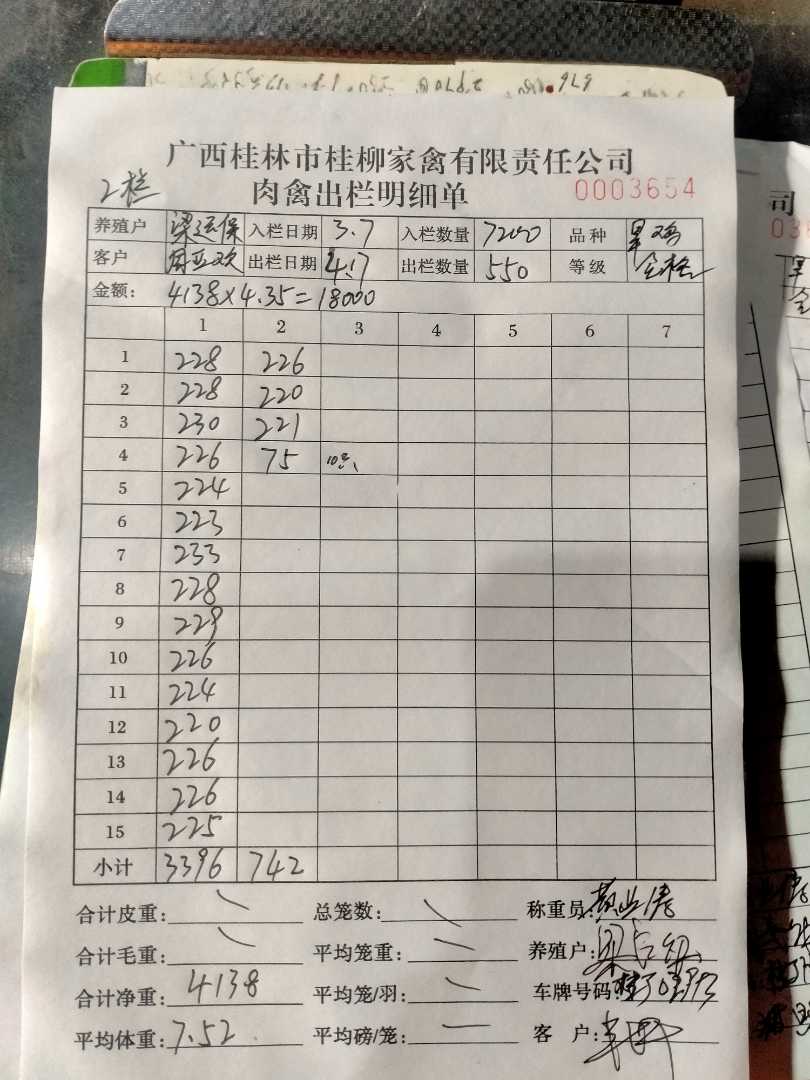 广西桂林市桂柳家禽有限责任公司
2栏 肉禽出栏明细单 0003654
养殖户 梁运保 入栏日期 3.7 入栏数量 7200 品种 旱鸡
客户 出栏日期 4.17 出栏数量 550 等级 合格
金额: 4138×4.35=18000
1 2 3 4 5 6 7
1 228 226
2 228 220
3 230 221
4 226 75 10只
5 224
6 223
7 233
8 228
9 229
10 226
11 224
12 220
13 226
14 226
15 225
小计 3396 742
合计皮重: 总笼数: 称重员:
合计毛重: 平均笼重: 养殖户:
合计净重: 4138 平均笼/羽: 车牌号码:
平均体重: 7.52 平均磅/笼: 客户:
司